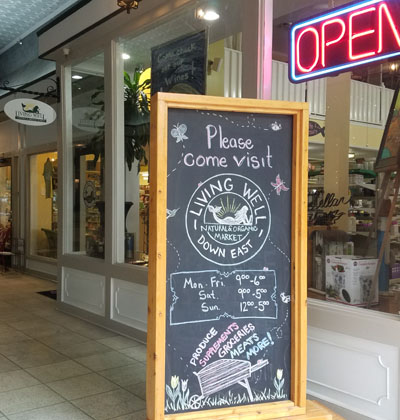 OPEN
LIVING WELL
Wines
Please
come visit
LIVING WELL
NATURAL & ORGANIC
MARKET
DOWN EAST
Mon-Fri 9:00-6:00
Sat. 9:00-5:00
Sun. 12:00-5:00
PRODUCE
SUPPLEMENTS
GROCERIES
MEATS
MORE!